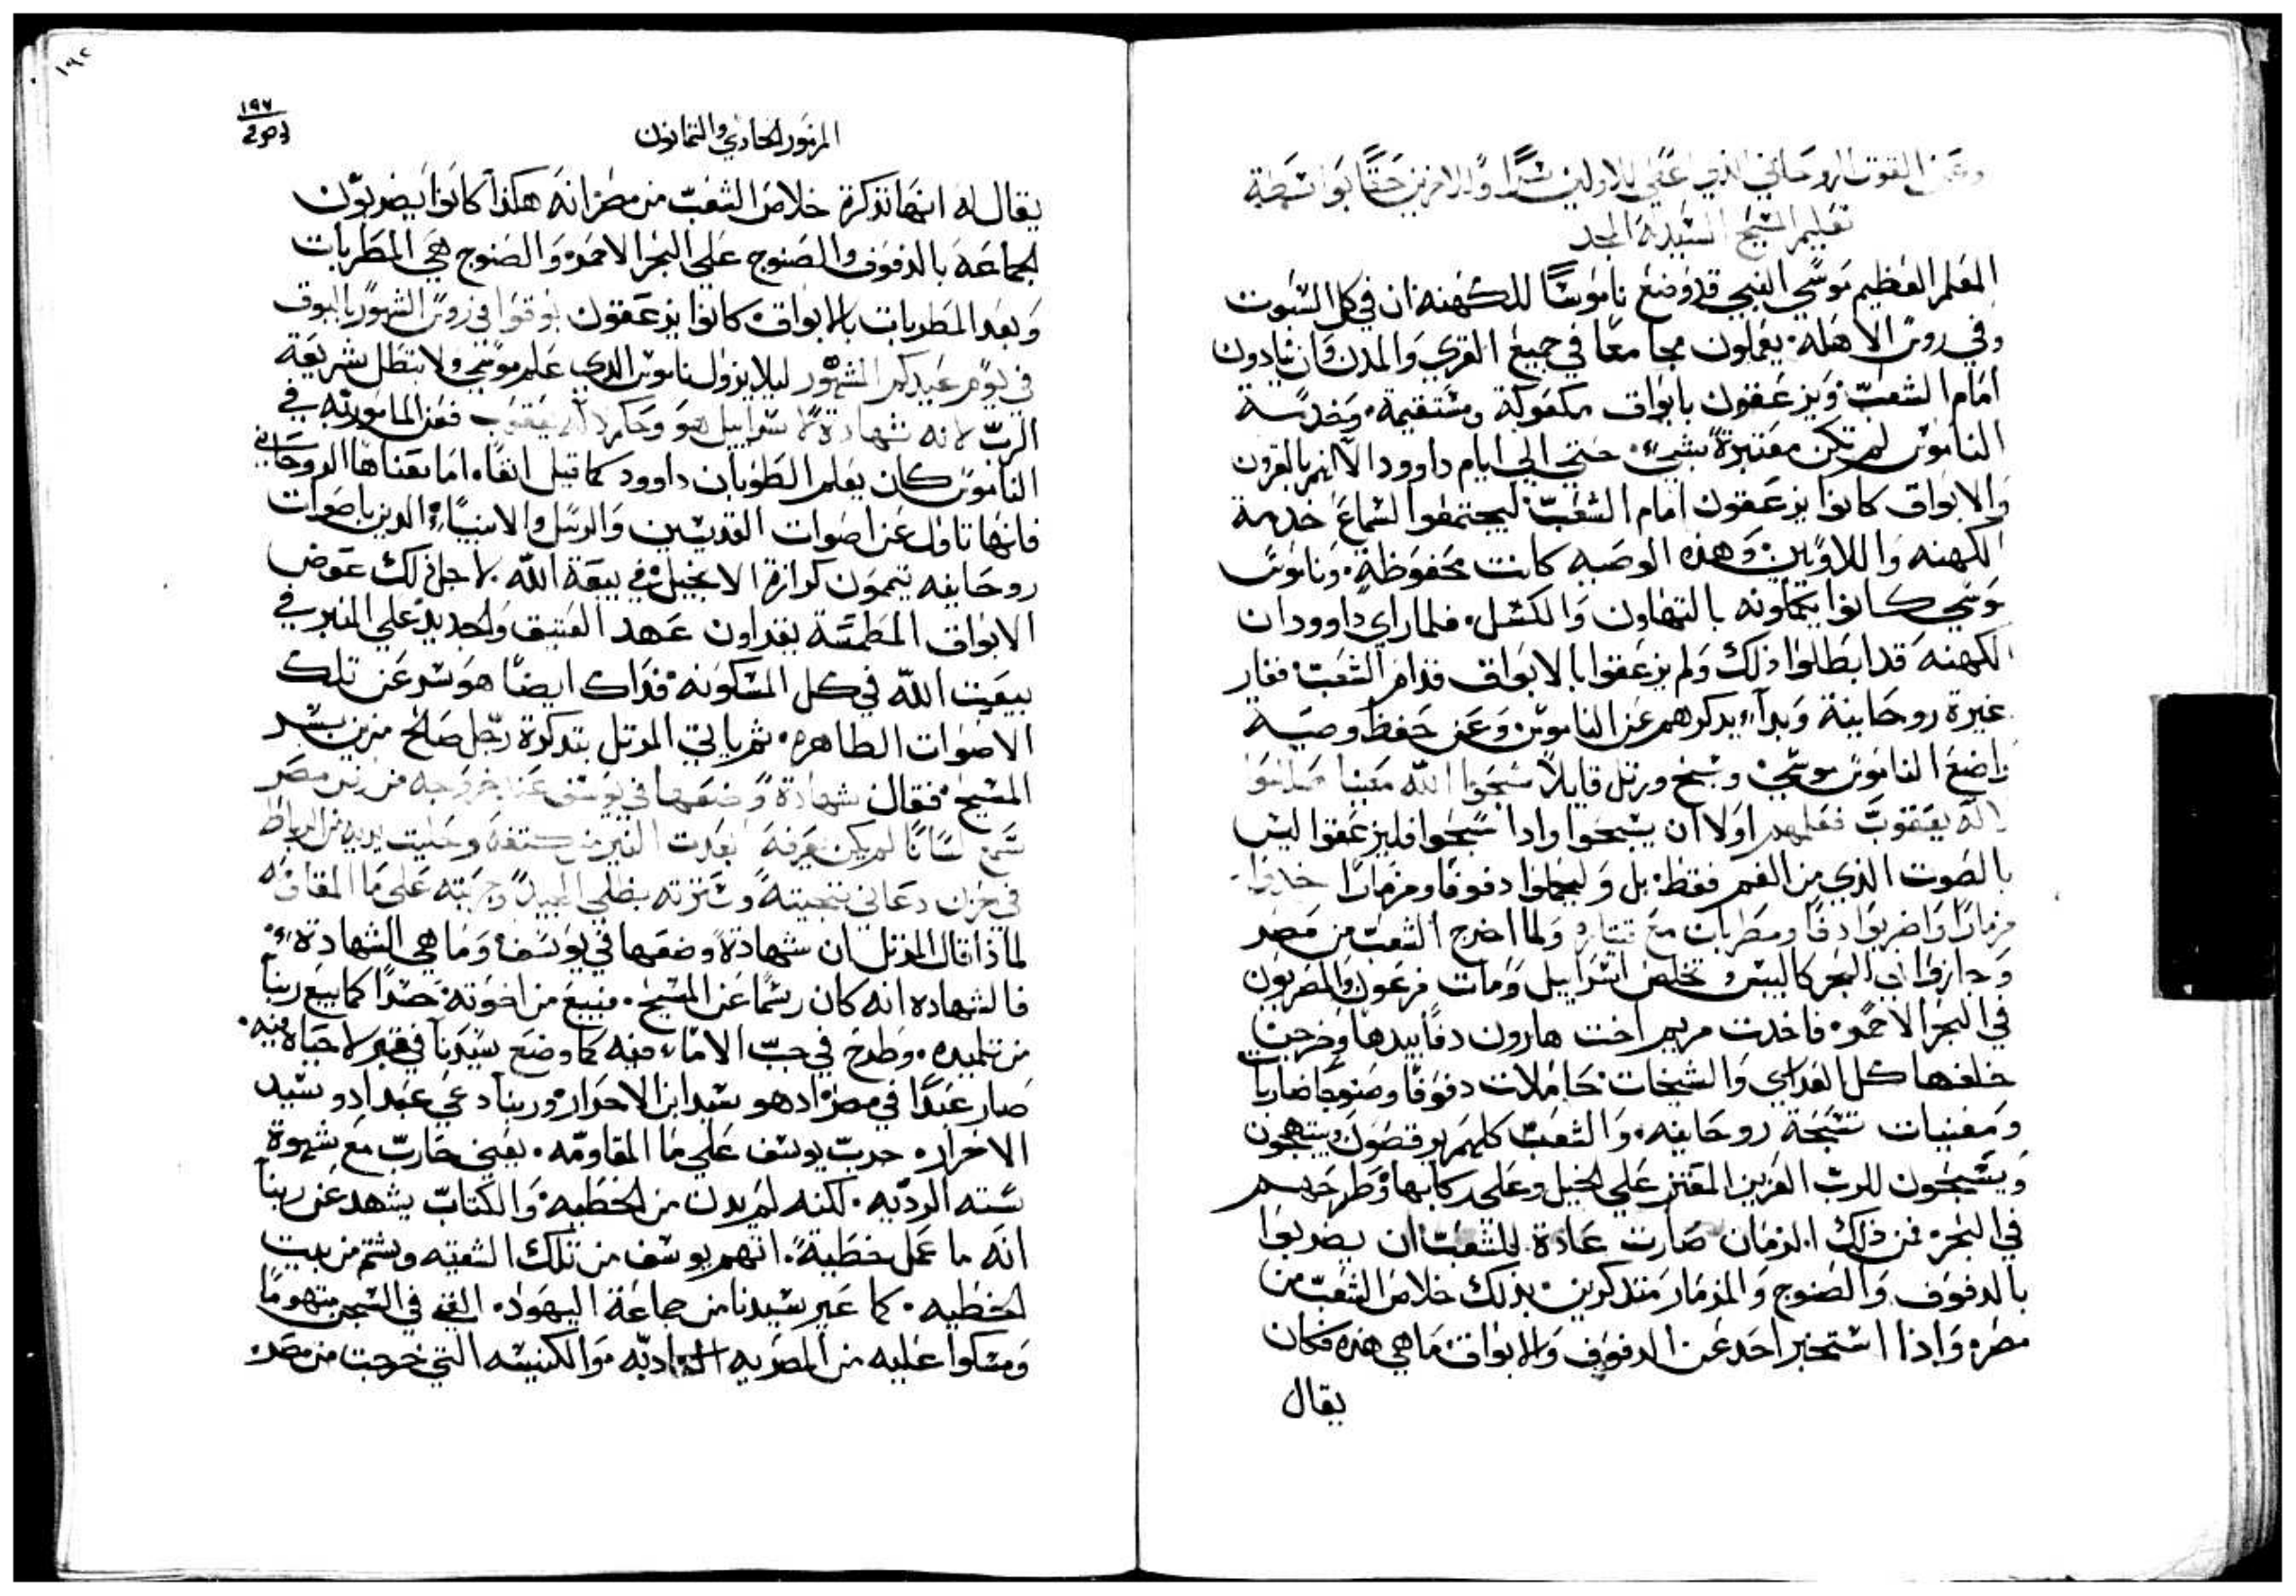 وعن القوت الروحاني الذي عطي للاولين سرًا وللاخرين حقًا بواسطة
تعليم المسيح السيد له المجد
المعلم العظيم موسي النبي قد وضع ناموسًا للكهنه ان في كل السبوت
وفي روس الاهله يعملون مجامعًا في جميع القري والمدن وان ينادون
امام الشعب ويزعقون بابواق معكوكة ومستقيمة وخدمة
الناموس لم تكن معتبرة بشيء حتي الي ايام داوود الا انهم بالقرون
والابواق كانوا يزعقون امام الشعب ليجتمعوا لسماع خدمة
الكهنه واللاويين وهذه الوصيه كانت محفوظة وناموس
موسي كانوا يكملونه بالتهاون والكسل فلما راي داوود ان
الكهنه قد ابطلوا ذلك ولم يزعقوا بالابواق قدام الشعب فغار
غيرة روحانية وبدآء يدكرهم عن الناموس وعن حفظ وصية
واضع الناموس موسي وسبح ورتل قايلاً سبحوا الله معيننا هللوا
لاله يعقوب فعلمهم اولا ان يسبحوا وادا سبحوا فليزعقوا ليس
بالصوت الذي من الفم فقط بل وليحملوا دفوفًا ومزمارًا خدوا
مزمارًا واضربوا دفًا ومطربات مع قيتاره ولما اخرج الشعب من مصر
وجازوا في البحر كاليبس وتخلص اسراييل ومات فرعون والمصريون
في البحر الاحمر فاخدت مريم اخت هارون دفًا بيدها وخرجن
خلفها كل العداري والشيخات حاملات دفوفًا وصنوجًا ضاربات
ومغنيات تسبحة روحانيه والشعب كلهم يرقصون ويبتهجون
ويسبحون للرب العزيز المقتدر علي الخيل وعلي ركابها وطرحهم
في البحر فمن ذلك الزمان صارت عادة للشعب ان يضربوا
بالدفوف والصنوج والمزمار متدكرين بذلك خلاص الشعب من
مصر واذا استخبر احد عن الدفوف والابواق ما هي هذه فكان
يقال
١٩٢
١٩٧
المزمور الحادي والثمانون
يقال له انها تذكرة خلاص الشعب من مصر انه هكذا كانوا يضربون
الجماعة بالدفوف والصنوج علي البحر الاحمر والصنوج هي المطربات
وبعد المطربات بالابواق كانوا يزعقون بوقوا في روس الشهور بالبوق
في يوم عيدكم المشهور ليلا يزول ناموس الدي علم موسي ولا تبطل شريعة
الرب لانه شهادة لاسراييل هو وحكم لاله يعقوب فعن المامور به في
الناموس كان يعلم الطوبان داوود كما قيل انفًا اما معناها الروحاني
فانها تاول عن اصوات القديسين والرسل والانبياء الدين باصوات
روحانيه يتممون كرازة الانجيل في بيعة الله لاجل ذلك عوض
الابواق المطمسة يقراون عهد العتيق والجديد علي المنبر في
بيعت الله في كل المسكونه فداك ايضًا هو سر عن تلك
الاصوات الطاهره ثم ياتي المرتل بتدكرة رجل صالح مزين بسر
المسيح فقال شهادة وضعها في يوسف عند خروجه من ارض مصر
سمع لسانًا لم يكن يعرفه ابعدت النير من كتفه وخليت يديه من الرباط
في حزن دعاني نجيته وسترته بظلي الجيد وجربته علي ما المقاومه
لماذا قال المرتل ان شهادة وضعها في يوسف وما هي الشهادة
فالشهاده انه كان رسمًا عن المسيح مبيع من اخوته حسدًا كما بيع ربنا
من تلميده وطرح في جب لا ماء فيه كما وضع سيدنا في قبر لا حياة فيه
صار عبدًا في مصر اد هو سيد ابن الاحرار وربنا دعي عبد اد و سيد
الاحرار جرب يوسف علي ما المقاومه يعني حارب مع شهوة
سته الرديه لكنه لم يدن من الخطيه والكتاب يشهد عن ربنا
انه ما عمل خطية اتهم يوسف من تلك الشقيه وشتم من بيت
الخطيه كما عير سيدنا من جماعة اليهود القي في السجن متهومًا
ومشكوا عليه من المصريه الكنيسه التي خرجت من مصر